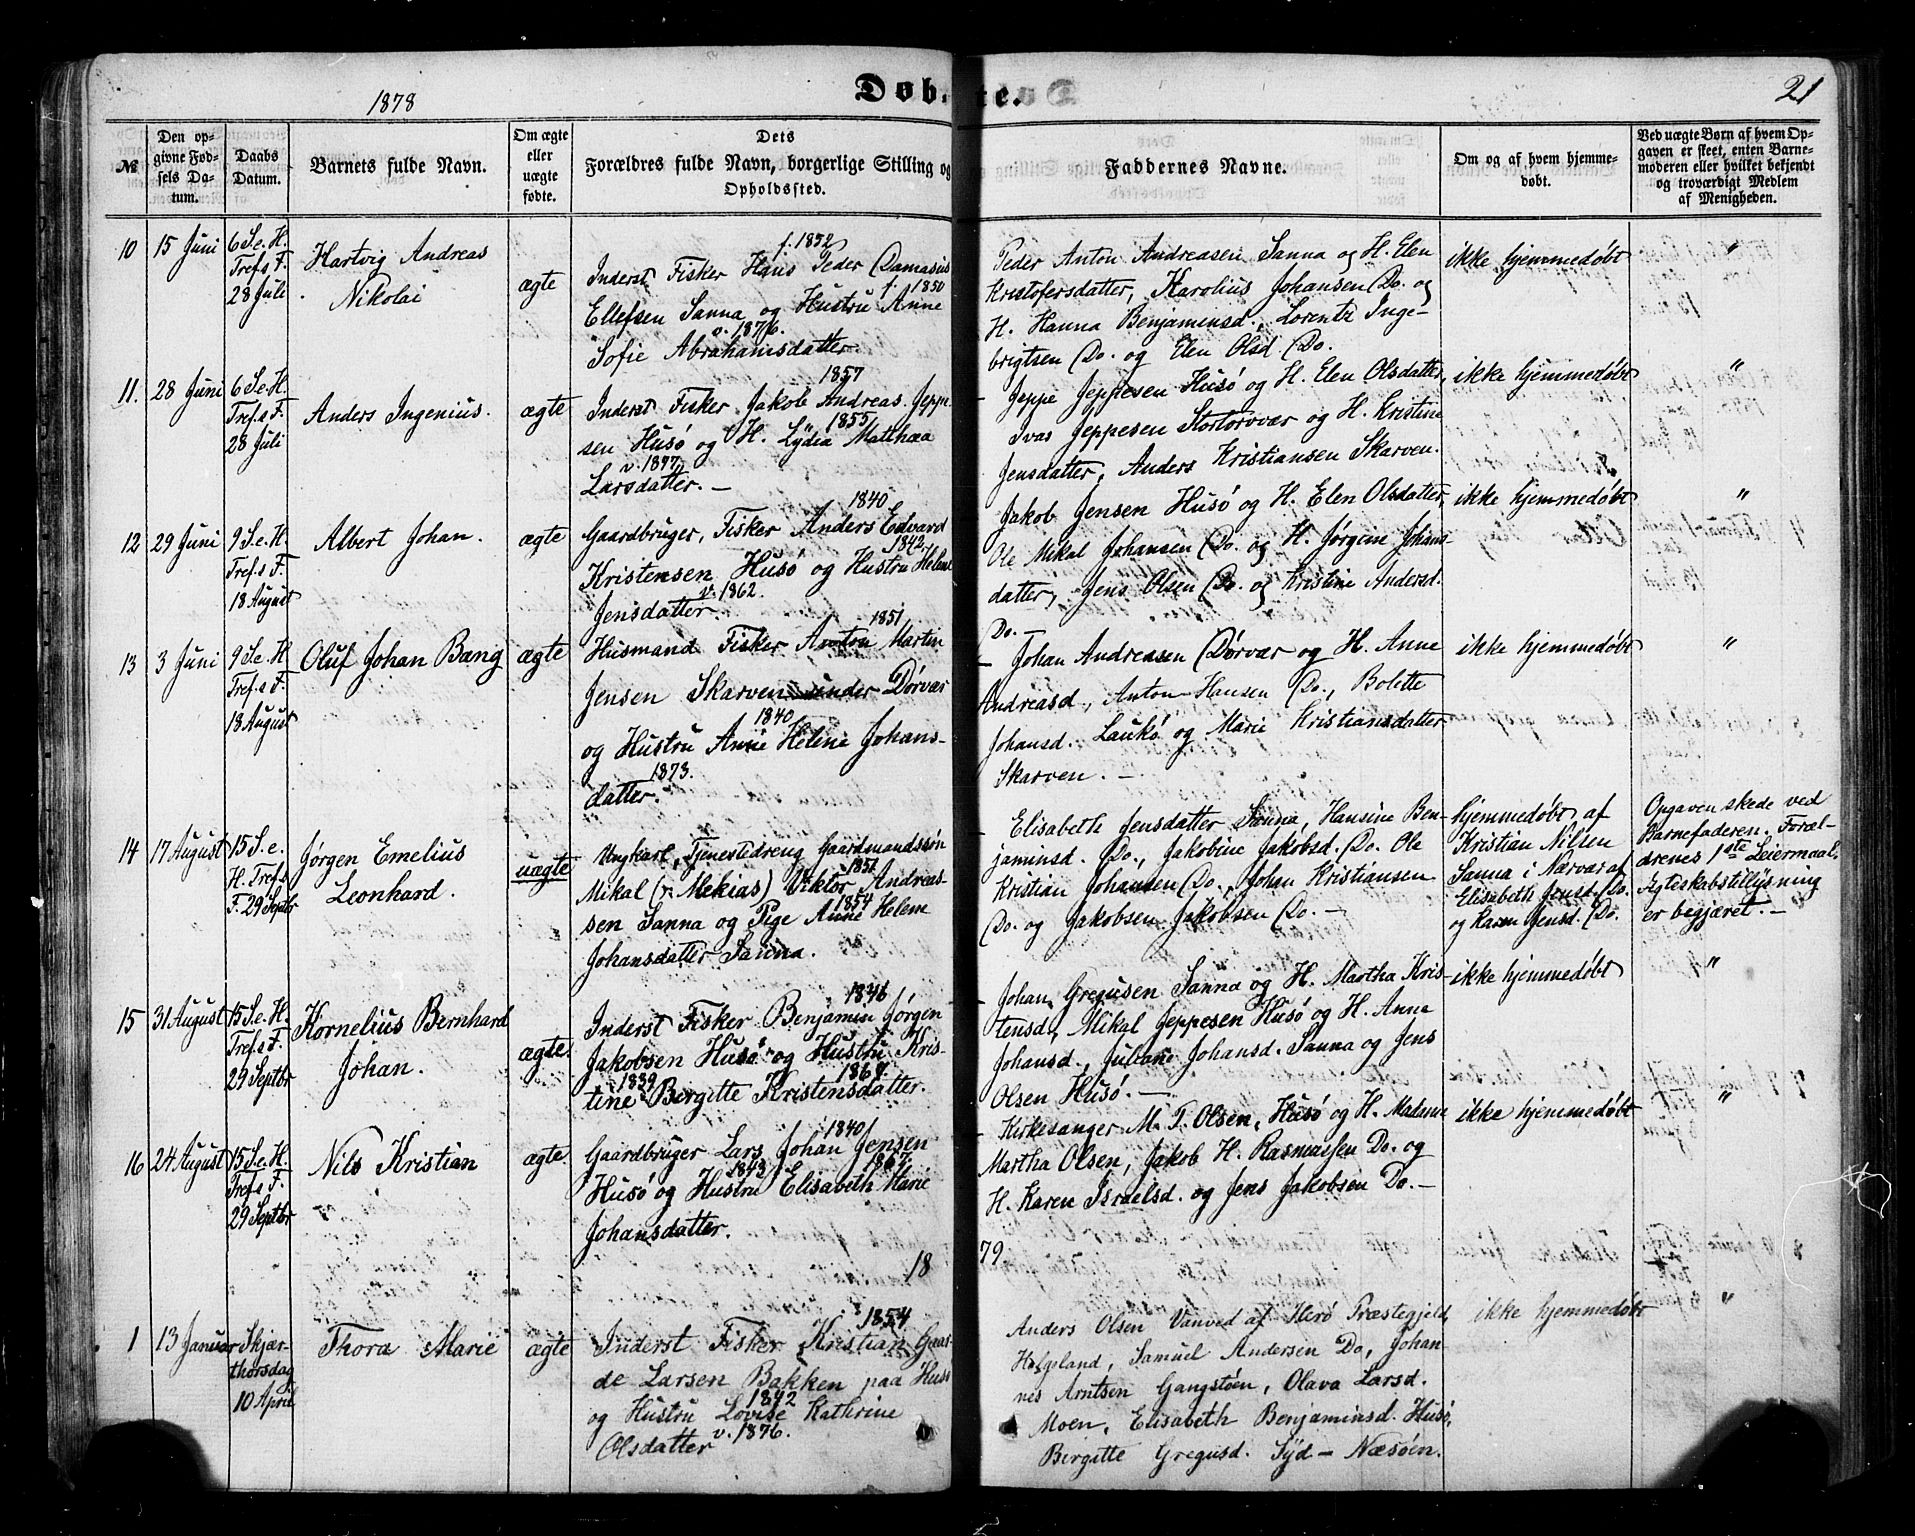 1878
Døbte.
21
№
Den opgivne Fødsels Datum.
Daabs Datum.
Barnets fulde Navn.
Om ægte eller uægte fødte.
Dets Forældres fulde Navn, borgerlige Stilling og Opholdssted.
Faddernes Navne.
Om og af hvem hjemmedøbt.
Ved uægte Børn af hvem Opgaven er skeet, enten Barnemoderen eller hvilket bekjendt og troværdigt Medlem af Menigheden.
10
15 Juni
6 S. e. H.
Tref.s F.
28 Juli
Hartvig Andreas
Nikolai
ægte
f. 1852
Inderst Fisker Hans Peder Damasius
f. 1850
Ellefsen Sanna og Hustru Anne
v. 1876.
Sofie Abrahamsdatter.
Peder Anton Andreasen Sanna og H. Elen
Kristofersdatter, Karolius Johansen Do. og
H. Hanna Benjamensd., Lorentz Inge-
brigtsen Do. og Elen Olsd. Do.
ikke hjemmedøbt
"
11.
28 Juni
6 S. e. H.
Tref.s F.
28 Juli
Anders Ingenius.
ægte
1857
Inderst Fisker Jakob Andreas Jeppe-
1855
sen Husø og H. Lydia Matthæa
v. 1877
Larsdatter. —
- Jeppe Jeppesen Husø og H. Elen Olsdatter,
Ivar Jeppesen Stortorvær og H. Kristine
Jensdatter, Anders Kristiansen Skarven.
ikke hjemmedøbt
"
12
29 Juni
9 S. e. H.
Tref.s F.
18 August
Albert Johan.
ægte
1840
Gaardbruger, Fisker Anders Edvard
1842
Kristensen Husø og Hustru Helene
v. 1862.
Jensdatter.
Jakob Jensen Husø og H. Elen Olsdatter,
Ole Mikal Johansen Do. og H. Jørgine Johans-
datter, Jens Olsen Do. og Kristine Andersd.
Do.
ikke hjemmedøbt
"
13
3 Juni
9 S. e. H
Tref.s F.
18 August
Oluf Johan Bang
ægte
1851
Husmand Fisker Anton Martin
Jensen Skarven under Dørvær
1840
og Hustru Anne Helene Johans-
1873.
datter.
- Johan Andreasen Dørvær og H. Anne
Andreasd., Anton Hansen Do., Bolette
Johansd. Laukø og Marie Kristiansdatter
Skarven. —
ikke hjemmedøbt
"
14
17 August
15 S. e.
H. Tref.s
F. 29 Septbr
Jørgen Emelius
Leonhard.
uægte
Ungkarl, Tjenestedreng Gaardmandssøn
1851
Mikal (v. Mekias) Viktor Andreas-
1854
sen Sanna og Pige Anne Helene
Johansdatter Sanna.
- Elisabeth Jensdatter Sanna, Hansine Ben-
jaminsd. Do., Jakobine Jakobsd. Do. Ole
Kristian Johansen Do., Johan Kristiansen
Do. og Jakobsen Jakobsen Do. —
hjemmedøbt af
Kristian Nilsen
Sanna i Nærvær af
Elisabeth Jensd. Do.
og Karen Jensd. Do.
Opgaven skede ved
Barnefaderen. Foræl-
drenes 1ste Leiermaal.
Ægteskabstillysning
er begjæret. —
15
31 August
15 S. e. H.
Tref.s F.
29 Septbr
Kornelius Bernhard
Johan.
ægte.
1846
Inderst Fisker Benjamin Jørgen
Jakobsen Husø og Hustru Kris-
1839
1868.
tine Bergitte Kristensdatter.
- Johan Gregusen Sanna og H. Martha Kris-
tensd., Mikal Jeppesen Husø og H. Anna
Johansd., Juliane Johansd. Sanna og Jens
Olsen Husø. —
ikke hjemmedøbt
"
16
24 August
15 S. e. H.
Tref.s F.
29 Septbr
Nils Kristian
ægte.
1840
Gaardbruger Lars Johan Jensen
1843
1867.
Husø og Hustru Elisabeth Marie
Johansdatter.
- Kirkesanger M. T. Olsen, Husø og H. Madame
Martha Olsen, Jakob H. Rasmussen Do. og
H. Karen Israelsd. og Jens Jakobsen Do. —
ikke hjemmedøbt
"
18
79
1
13 Januar
Skjær-
thorsdag
10 April
Thora Marie
ægte
1854
Inderst Fisker Kristian Gaas-
de Larsen Bakken paa Husø
1842
og Hustru Lovise Kathrine
v. 1876.
Olsdatter
Anders Olsen Vanved af Herø Præstegjeld,
Helgeland, Samuel Andersen Do, Johan-
nes Arntsen Gangstøen, Olava Larsd.
Moen, Elisabeth Benjaminsd. Husø,
Bergitte Gregusd. Syd-Næsøen.
ikke hjemmedøbt
"